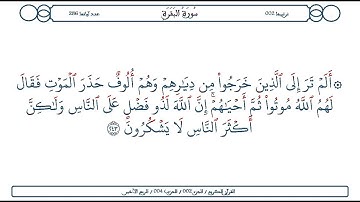 ترتيبها 002 سُورَةُ البَقَرَةِ عدد آياتها 286
۞ أَلَمْ تَرَ إِلَى ٱلَّذِينَ خَرَجُوا۟ مِن دِيَـٰرِهِمْ وَهُمْ أُلُوفٌ حَذَرَ ٱلْمَوْتِ فَقَالَ
لَهُمُ ٱللَّهُ مُوتُوا۟ ثُمَّ أَحْيَـٰهُمْ ۚ إِنَّ ٱللَّهَ لَذُو فَضْلٍ عَلَى ٱلنَّاسِ وَلَـٰكِنَّ
أَكْثَرَ ٱلنَّاسِ لَا يَشْكُرُونَ ٢٤٣
القرآن الكريم / الجزء 002 / الحزب 004 / الربع الأخير